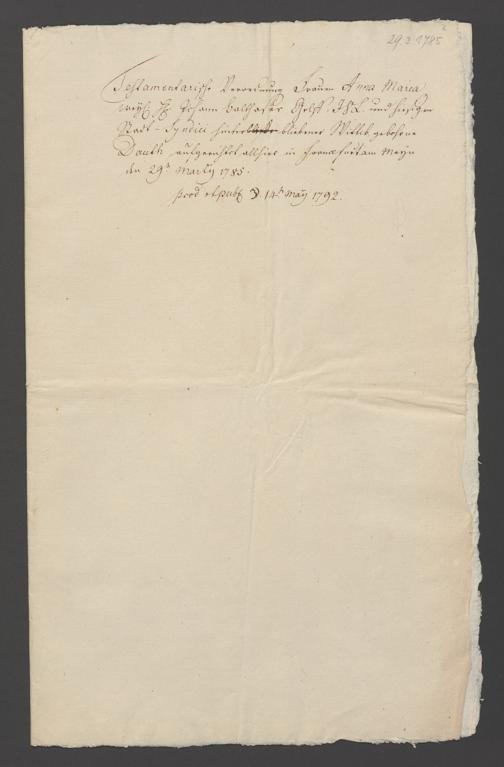 29.3.1785
Testamentarische Verordnung Frauen Anna Maria
weyl. H. Johann Balthasar
Stadt-Syndici hinterbliebener Wittib gebohrne
Dauth, aufgerichtet allhier in Franckfurt am Mayn
den 29n Marty 1785.
prod et publ D. 14n May 1792.